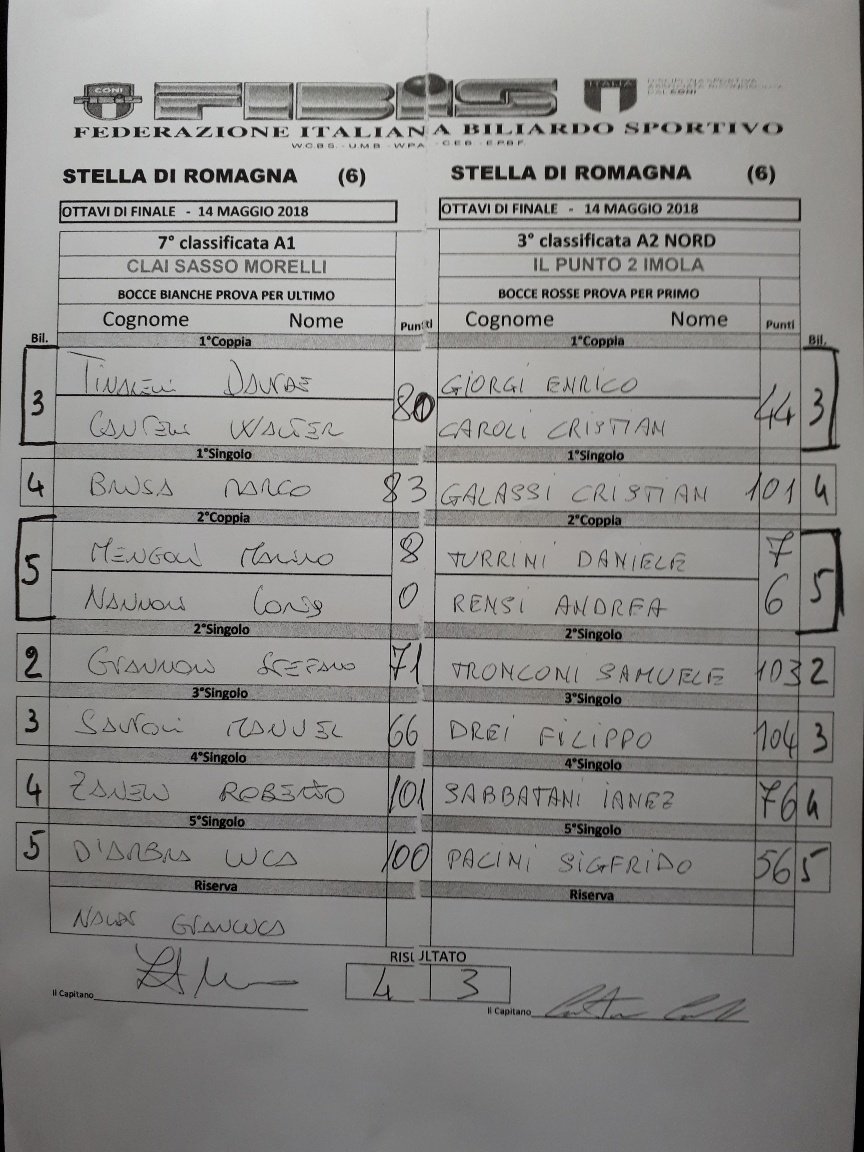 CONI FIBiS ITALIA
DAL CONI
FEDERAZIONE ITALIANA BILIARDO SPORTIVO
W.C.B.S. - U.M.B - WPA - C.E.B - E.P.B.F.
STELLA DI ROMAGNA (6)
OTTAVI DI FINALE - 14 MAGGIO 2018
7° classificata A1
CLAI SASSO MORELLI
BOCCE BIANCHE PROVA PER ULTIMO
Cognome Nome Punti
Bil.
1°Coppia
3
80
WALTER
1°Singolo
4 BRUSA MARCO 83
2°Coppia
5
MENGOLI MARINO 8
NANNONI 0
2°Singolo
2 GIANNONI STEFANO 71
3°Singolo
3 SANTOLI MANUEL 66
4°Singolo
4 ROBERTO 101
5°Singolo
5 LUCA 100
Riserva
GIANLUCA
Il Capitano
STELLA DI ROMAGNA (6)
OTTAVI DI FINALE - 14 MAGGIO 2018
3° classificata A2 NORD
IL PUNTO 2 IMOLA
BOCCE ROSSE PROVA PER PRIMO
Cognome Nome Punti
Bil.
1°Coppia
GIORGI ENRICO
44 3
CAROLI CRISTIAN
1°Singolo
GALASSI CRISTIAN 101 4
2°Coppia
TURRINI DANIELE 7
5
RENSI ANDREA 6
2°Singolo
TRONCONI SAMUELE 103 2
3°Singolo
DREI FILIPPO 104 3
4°Singolo
SABBATANI IANEZ 76 4
5°Singolo
PACINI SIGFRIDO 56 5
Riserva
RISULTATO
4 3
Il Capitano